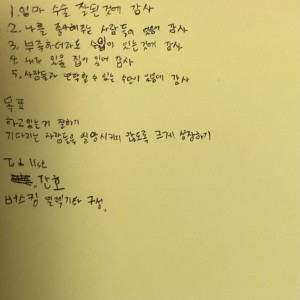 1. 엄마 수술 잘된것에 감사
2. 나를 좋아해주는 사람들이 있음에 감사
3. 부족하더라도 수입이 있는것에 감사
4. 내가 있을 집이 있어 감사
5. 사람들과 연락할 수 있는 수단이 있음에 감사
목표
하고있는거 잘하기
기다리는 사람들을 실망시키지 않도록 크게 성장하기
list
간호
버스킹 일렉기타 구성.